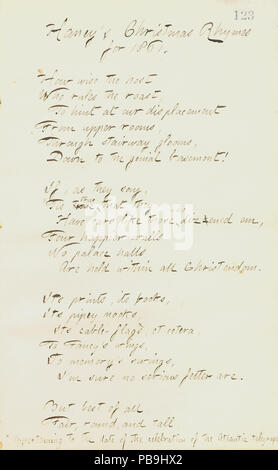 123
Haney's, Christmas Rhymes
for 1861.
How wise the host
Who rules the roast,
To hint at our displacement
From upper rooms,
Through stairway glooms,
Down to the genial basement!
If, as they say,
'Tis true that they
Have
em,
Four happier walls
No palace halls
Are held within all Christendom.
Its prints, its books,
Its pipey nooks,
Its cable-flags, et cetera,
To Fancy's wings,
To memory's swings,
I'm sure no serious fetter are.
But best of all
Fair, round, and tall
Appertaining to the date of the celebration of the Atlantic telegraph
alamy
Image ID: PB9HX2
www.alamy.com